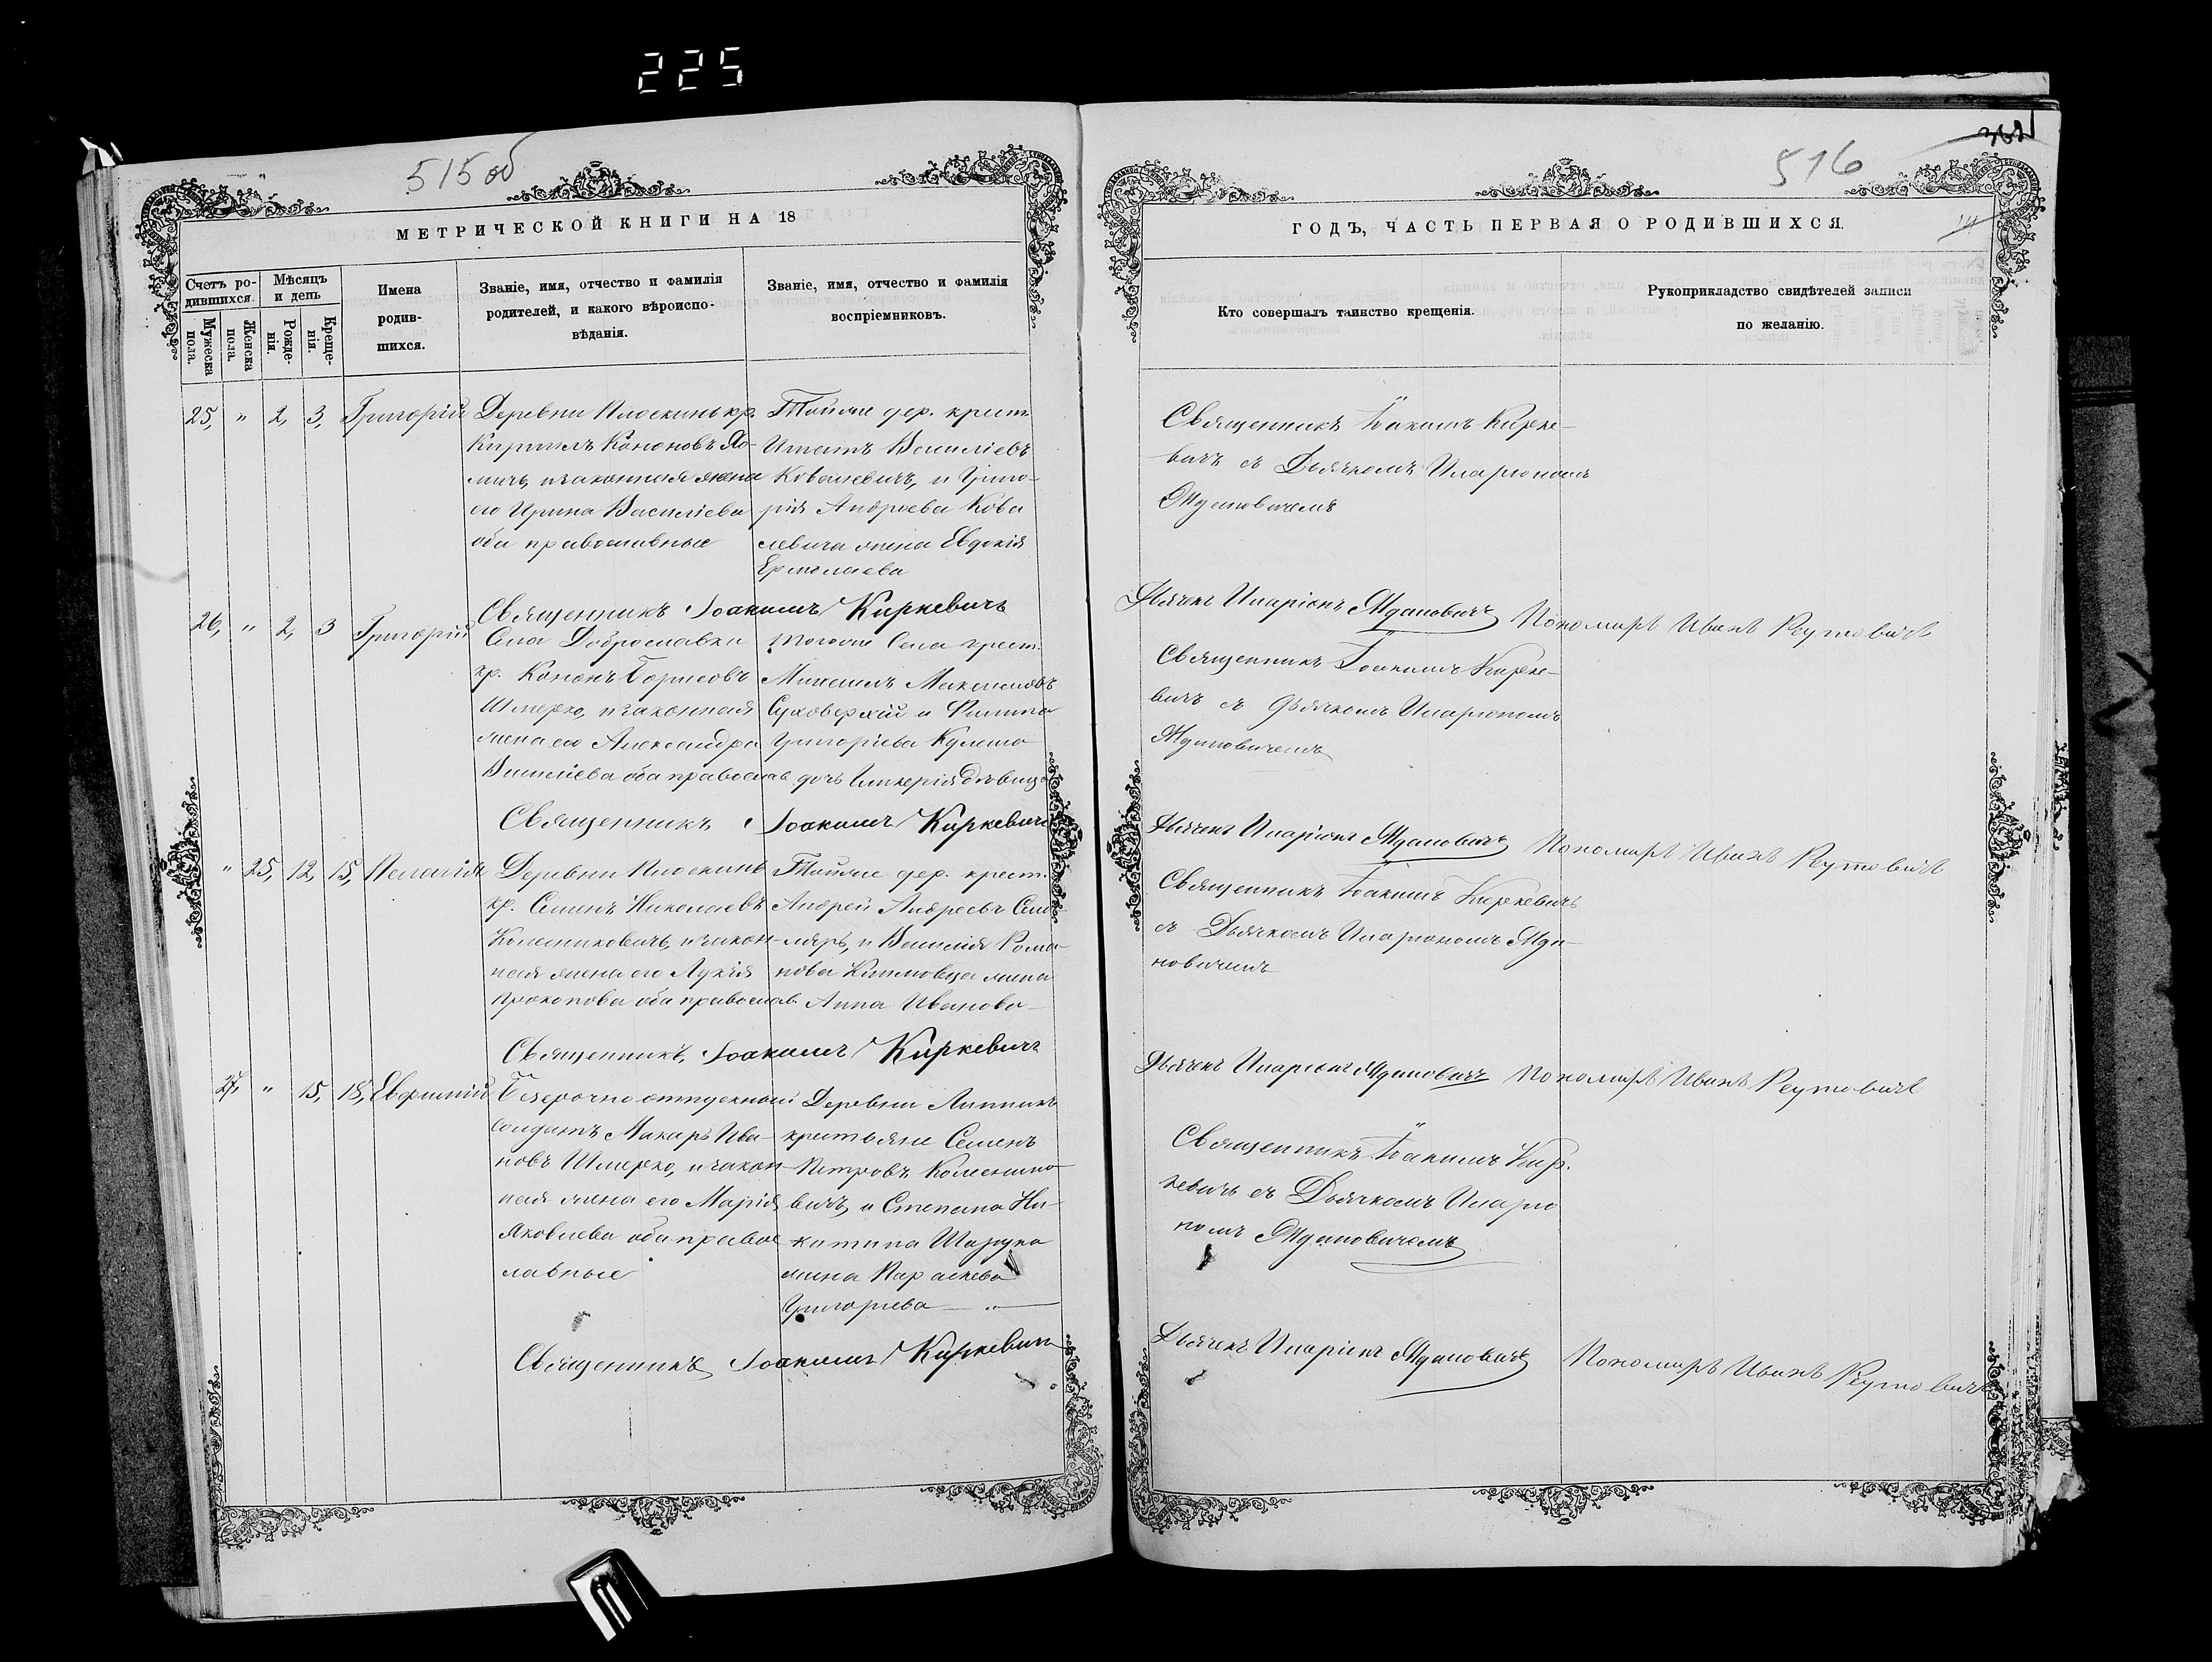 225
515об
МЕТРИЧЕСКОЙ КНИГИ НА 18
Счетъ ро-
дившихся.
Мѣсяцъ
и день
Мужеска
пола.
Женска
пола.
Рожде-
нія.
Креще-
нія.
Имена
родив-
шихся.
Званіе, имя, отчество и фамилія
родителей, и какого вѣроиспо-
вѣданія.
Званіе, имя, отчество и фамилія
воспріемниковъ.
25, " 2, 3, Григорій
Деревни Плоскинь кр.
Кирилъ Кононовъ
и законная жена
его Ирина Василіева
оба православные
Тойже дер. крест.
Игнатъ Василіевъ
Ковалевичъ, и Григо-
рія Андреева Кова
левича жена Евдокія
Ермолаева
Священникъ Іоакимъ Киркевичъ
26, " 2, 3 Григорій
Села Доброславки
кр. Кононъ Борисовъ
Шмерко, и законная
жена его Александра
Василіева оба православ
тогоже Села крест.
Михаилъ
и Филипа
Григоріева
дочь Гликерія дѣвица
Священникъ Іоакимъ Киркевичъ
" 25, 12, 15, Пелагія
Деревни Плоскинь
кр. Семенъ Николаевъ
Колесниковичъ, и закон-
ная жена его Лукія
Прокопова оба православ.
Тойже дер. крест.
Андрей Андреевъ Сто-
ляръ, и Василія Рома-
нова Климовца жена
Анна Иванова
Священникъ, Іоакимъ Киркевичъ
27, " 15, 18, Евфимій
Безсрочно отпускной
солдатъ Макаръ Ива-
новъ Шмерко, и закон-
ная жена его Марія
Яковлева оба правос
лавные
Деревни Липникъ
крестьяне Семенъ
Петровъ
вичъ, и Степана Ни-
китина
жена Параскева
Григоріева — " —
Священникъ Іоакимъ Киркевичъ
516
ГОДЪ, ЧАСТЬ ПЕРВАЯ О РОДИВШИХСЯ.
Кто совершалъ таинство крещенія.
Рукоприкладство свидѣтелей записи
по желанію.
Священникъ Іоакимъ Кирке-
вичъ съ Дьячкомъ Иларіономъ
Ждановичемъ
Дьячекъ Иларіонъ Ждановичъ Пономарь Иванъ Реутовичъ
Священникъ Іоакимъ Кирке-
вичъ съ дьячкомъ Иларіономъ
Ждановичемъ
Дьячекъ Иларіонъ Ждановичъ Пономарь Иванъ Реутовичъ
Священникъ Іоакимъ Киркевичъ
съ Дьячкомъ Иларіономъ Жда-
новичемъ
Дьячекъ Иларіонъ Ждановичъ Пономарь Иванъ Реутовичъ
Священникъ Іоакимъ Кир-
кевичъ съ Дьячкомъ Иларіо
номъ Ждановичемъ
Дьячекъ Иларіонъ Ждановичъ Пономарь Иванъ Реутовичъ